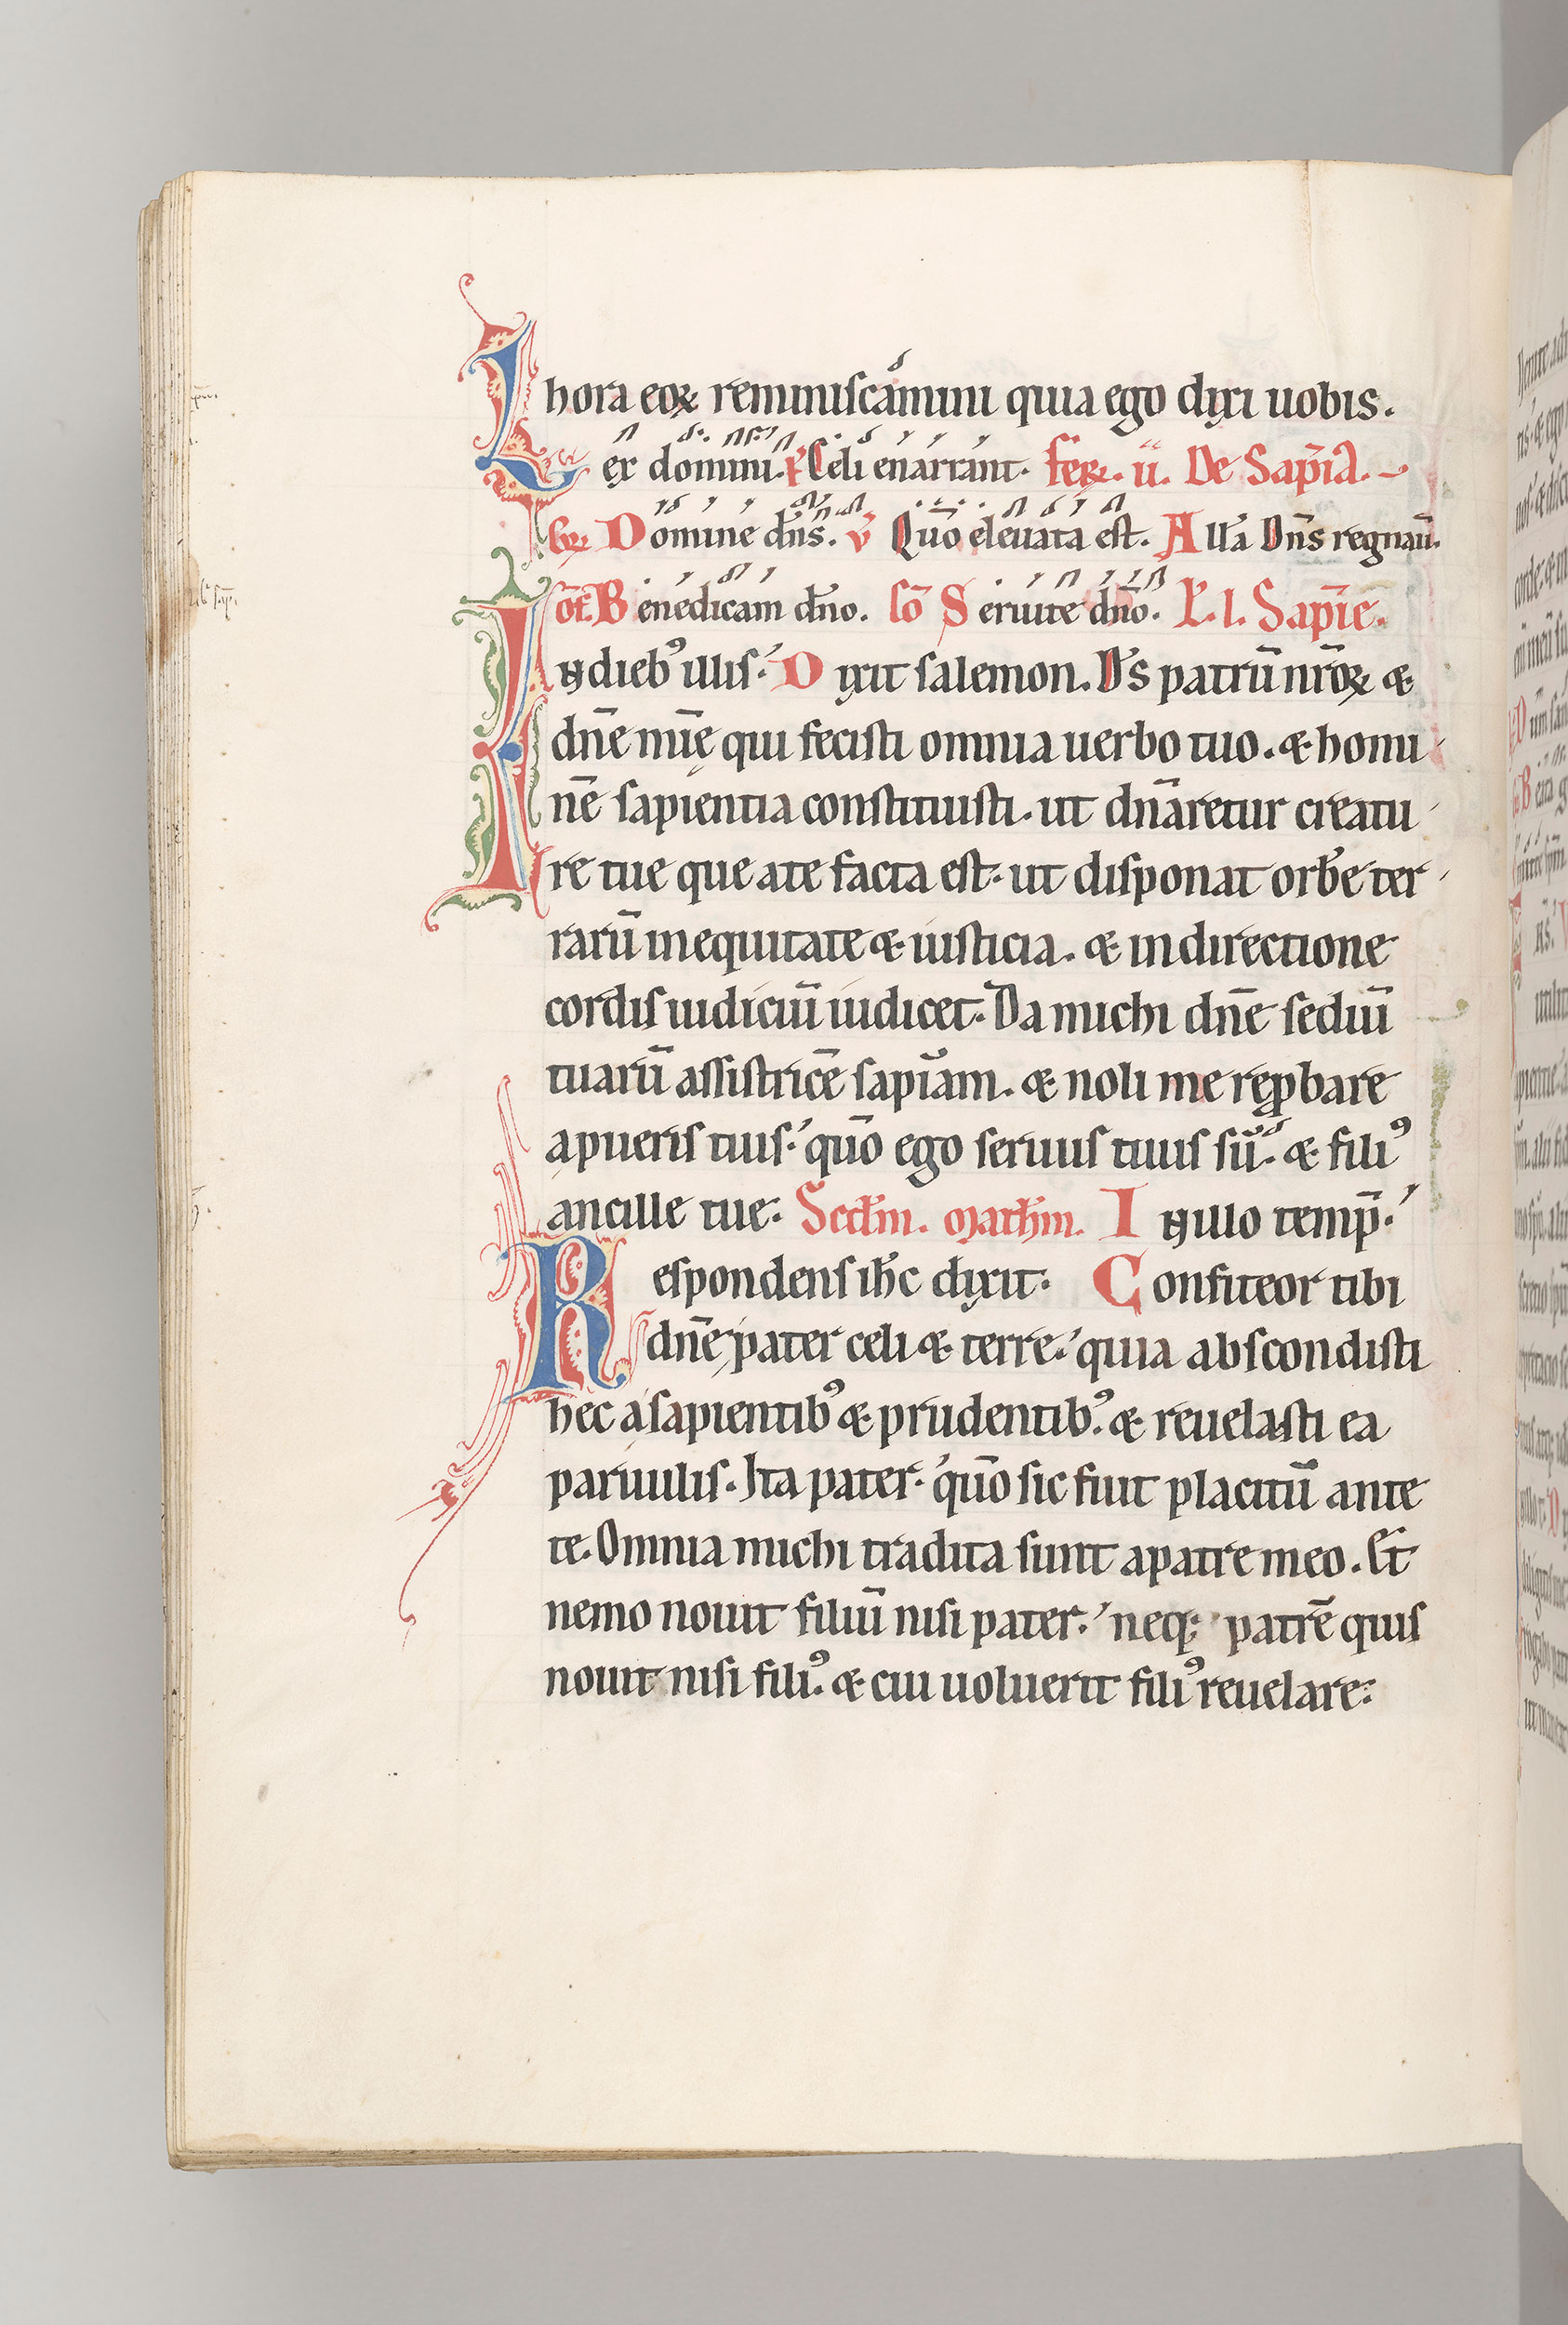 hora eoꝝ reminiscamini quia ego dixi uobis.
Lex domini. P̄ Celi enarrant. fer̄. ii. De Sap̄ia.
Gꝝ Domine dn̄s. v̄ Qūo eleuata est. All̄a Dn̄s regnaū.
Of̄ Benedicam dn̄o. Cō Seruite dn̄o. L̄. l. Sapīe.
In dieb᷒ illis. Dixit salemon. Ds̄ patrū nr̄oꝝ &
dn̄e mīe qui fecisti omnia uerbo tuo. & homi
nē sapientia constituisti. ut dn̄aretur creatu
re tue que a te facta est. ut disponat orbē ter
rarū in equitate & iusticia. & in directione
cordis iudiciū iudicet. Da michi dn̄e sediū
tuarū assistricē sapīam. & noli me reꝓbare
a pueris tuis. qūo ego seruus tuus sū. & fili᷒
ancille tue. Scdm̄. math̄m. In illo temp̄.
Respondens ih̄c dixit. Confiteor tibi
dn̄e pater celi & terre. quia abscondisti
hec a sapientib᷒ & prudentib᷒. & reuelasti ea
paruulis. Ita pater. qūo sic fuit placitū ante
te. Omnia michi tradita sunt a patre meo. Et
nemo nouit filiū nisi pater. neq; patrē quis
nouit nisi fili᷒. & cui uoluerit fili᷒ reuelare.